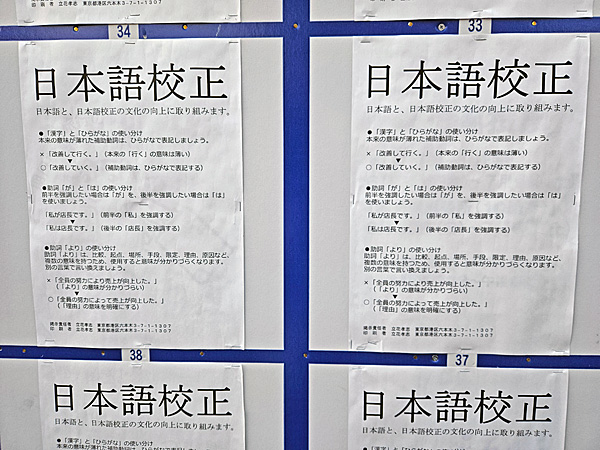 印 刷 者 立花孝志 東京都港区六本木3-7-1-1307
印 刷 者 立花孝志 東京都港区六本木3-7-1-1307
34
33
日本語校正
日本語と、日本語校正の文化の向上に取り組みます。
●「漢字」と「ひらがな」の使い分け
本来の意味が薄れた補助動詞は、ひらがなで表記しましょう。
×「改善して行く。」(本来の「行く」の意味は薄い)
▼
○「改善していく。」(補助動詞は、ひらがなで表記する)
●助詞「が」と「は」の使い分け
前半を強調したい場合は「が」を、後半を強調したい場合は「は」
を使いましょう。
「私が店長です。」(前半の「私」を強調する)
▼
「私は店長です。」(後半の「店長」を強調する)
●助詞「より」の使い分け
助詞「より」は、比較、起点、場所、手段、限定、理由、原因など、
複数の意味を持つため、使用すると意味が分かりづらくなります。
別の言葉で言い換えましょう。
×「全員の努力により売上が向上した。」
(「より」の意味が分かりづらい)
▼
○「全員の努力によって売上が向上した。」
(「理由」の意味を明確にする)
掲示責任者 立花孝志 東京都港区六本木3-7-1-1307
印 刷 者 立花孝志 東京都港区六本木3-7-1-1307
日本語校正
日本語と、日本語校正の文化の向上に取り組みます。
●「漢字」と「ひらがな」の使い分け
本来の意味が薄れた補助動詞は、ひらがなで表記しましょう。
×「改善して行く。」(本来の「行く」の意味は薄い)
▼
○「改善していく。」(補助動詞は、ひらがなで表記する)
●助詞「が」と「は」の使い分け
前半を強調したい場合は「が」を、後半を強調したい場合は「は」
を使いましょう。
「私が店長です。」(前半の「私」を強調する)
▼
「私は店長です。」(後半の「店長」を強調する)
●助詞「より」の使い分け
助詞「より」は、比較、起点、場所、手段、限定、理由、原因など、
複数の意味を持つため、使用すると意味が分かりづらくなります。
別の言葉で言い換えましょう。
×「全員の努力により売上が向上した。」
(「より」の意味が分かりづらい)
▼
○「全員の努力によって売上が向上した。」
(「理由」の意味を明確にする)
掲示責任者 立花孝志 東京都港区六本木3-7-1-1307
印 刷 者 立花孝志 東京都港区六本木3-7-1-1307
38
37
日本語校正
日本語と、日本語校正の文化の向上に取り組みます。
●「漢字」と「ひらがな」の使い分け
本来の意味が薄れた補助動詞は、ひらがなで表記しましょう。
日本語校正
日本語と、日本語校正の文化の向上に取り組みます。
●「漢字」と「ひらがな」の使い分け